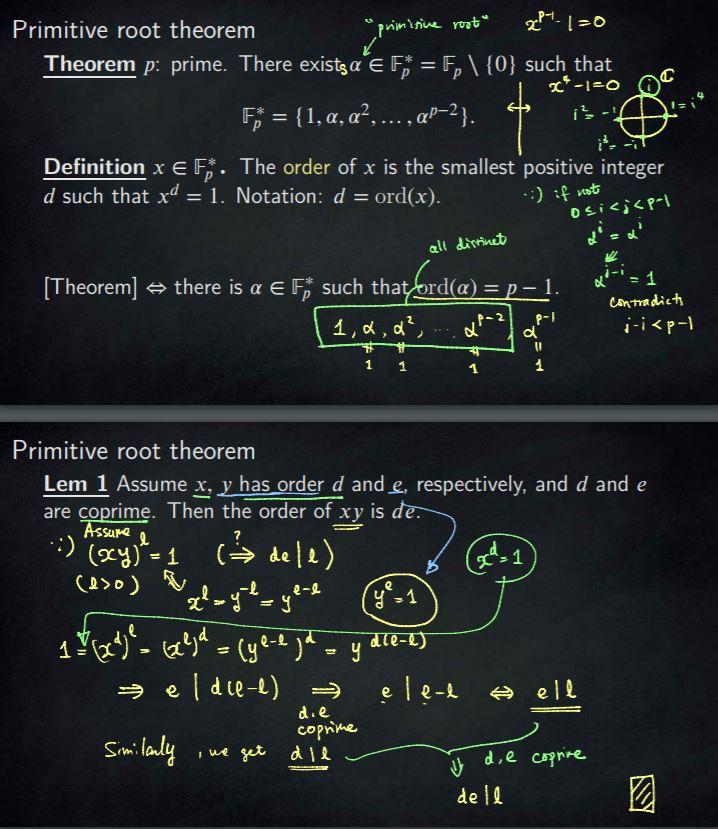 Primitive root theorem
"primitive root"
x^{p-1} - 1 = 0
Theorem p: prime. There exists α ∈ 𝔽_p^* = 𝔽_p \ {0} such that
x^4 - 1 = 0
i
ℂ
𝔽_p^* = {1, α, α^2, ..., α^{p-2}}.
i^2 = -1
1 = i^4
i^3 = -i
Definition x ∈ 𝔽_p^*. The order of x is the smallest positive integer
d such that x^d = 1. Notation: d = ord(x).
∵) if not
0 ≤ i < j < p-1
α^i = α^j
all distinct
α^{j-i} = 1
[Theorem] ⇔ there is α ∈ 𝔽_p^* such that ord(α) = p − 1.
contradicts
j-i < p-1
1, α, α^2, ... α^{p-2}, α^{p-1}
≠ ≠ ≠ =
1 1 1 1
Primitive root theorem
Lem 1 Assume x, y has order d and e, respectively, and d and e
are coprime. Then the order of xy is de.
Assume
∵) (xy)^l = 1 (⇒^? de | l)
x^d = 1
(l > 0)
x^l = y^{-l} = y^{e-l}
y^e = 1
1 = (x^d)^l = (x^l)^d = (y^{e-l})^d = y^{d(e-l)}
⇒ e | d(e-l) ⇒ e | e-l ⇔ e | l
d, e
coprime
Similarly, we get d | l
⇓ d, e coprime
de | l